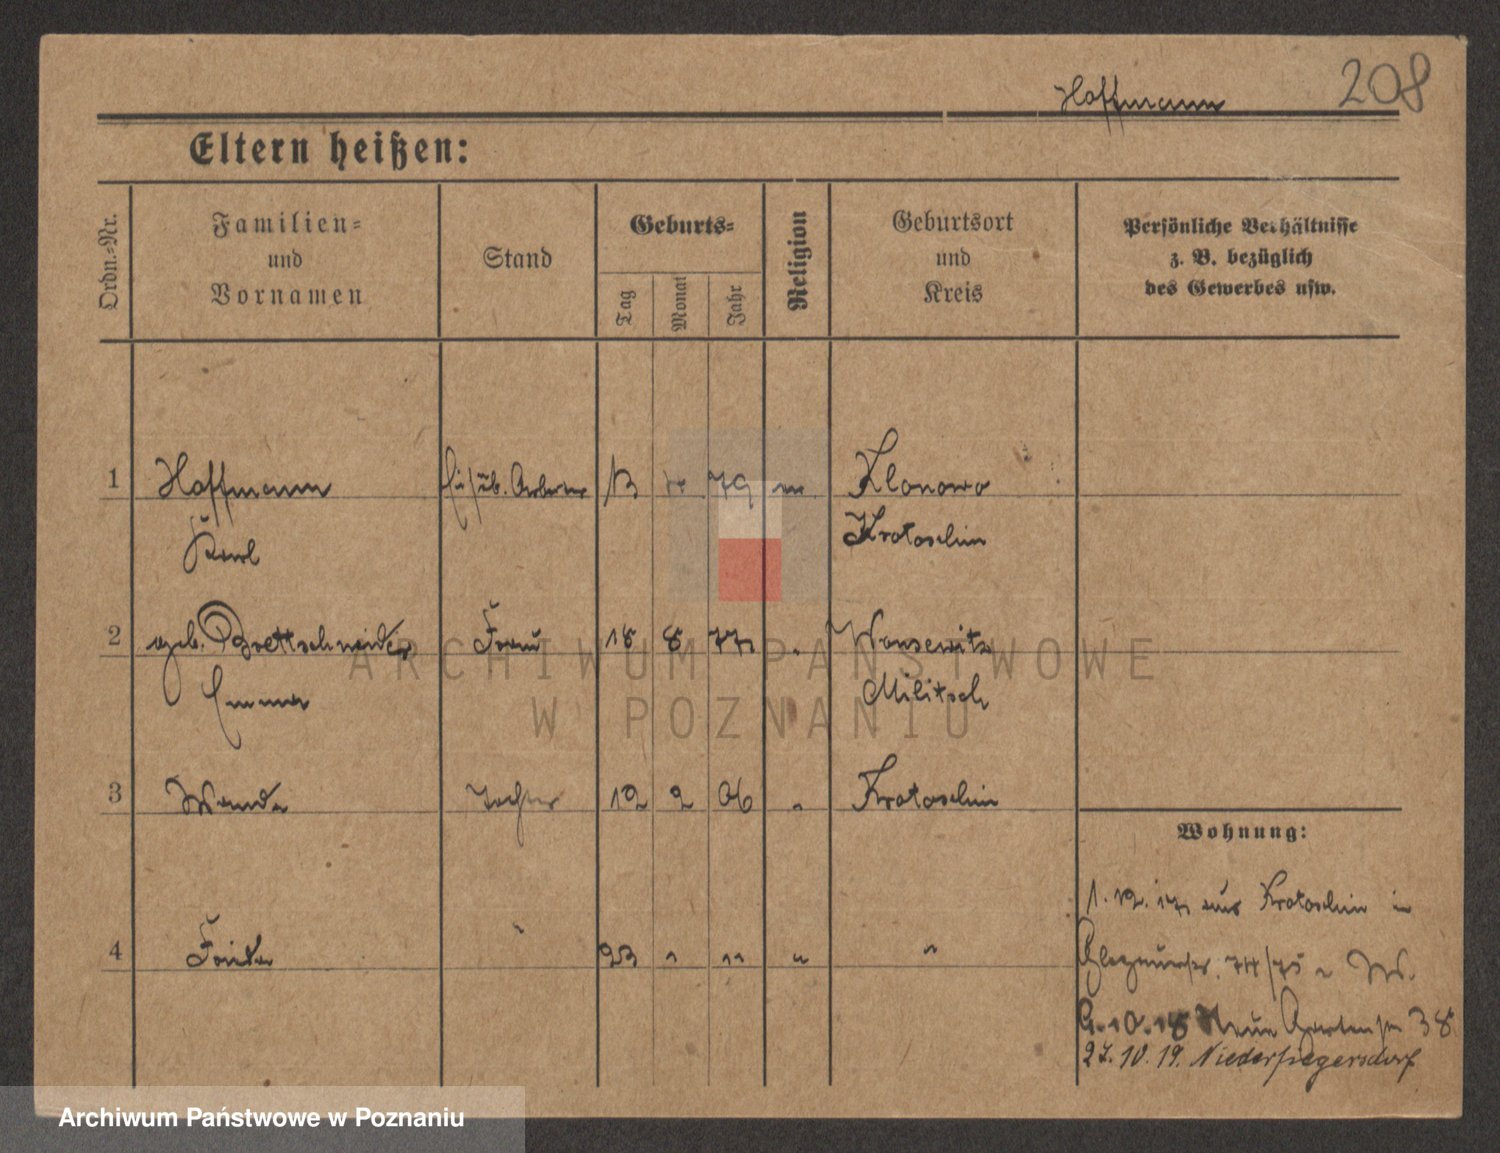 Hoffmann 208
Eltern heißen:
Ordn.-Nr. Familien- und Vornamen Stand Geburts- Tag Monat Jahr Religion Geburtsort und Kreis Persönliche Verhältnisse z. B. bezüglich des Gewerbes usw.
1 Hoffmann 13 79 Klonowo
Karl Krotoschin
2 geb. Brettschneider Frau 18 8 77 " 
Emma Militsch
3 Wanda Tochter 12 2 06 " Krotoschin
Wohnung:
1. 12. 17 aus Krotoschin in
4 Frieda " 23 " " " "
74/75
10.18 Neue Gartenstr 38
27.10.19. Niedersiegersdorf
ARCHIWUM PAŃSTWOWE
W POZNANIU
Archiwum Państwowe w Poznaniu